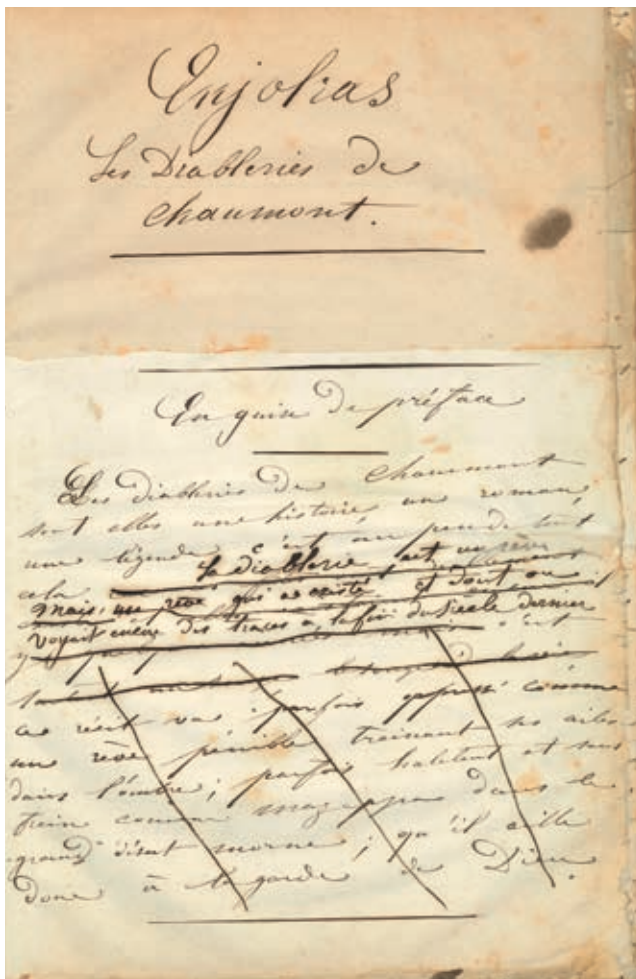 Enjolras
Les Diableries de
Chaumont.
En guise de préface
Les diableries de Chaumont
sont elles une histoire, un roman,
une légende, c'est un peu de tout
cela. la diablerie est un rêve
mais, un rêve qui a existé et dont on
voyait encore des traces à la fin du siècle dernier
ce récit va parfois oppressé comme
un rêve pénible trainant ses ailes
dans l'ombre; parfois haletant et sans
frein comme mazeppa dans le
grand désert morne; qu'il aille
donc à la garde de Dieu.